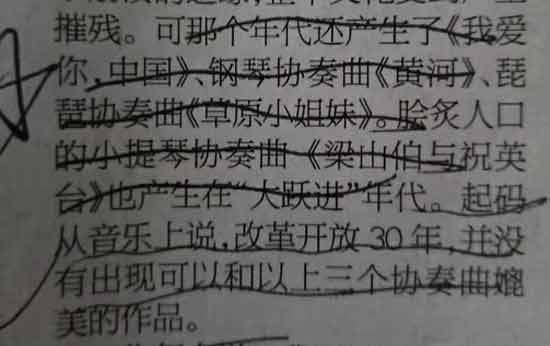 摧残。可那个年代还产生了《我爱
你,中国》、钢琴协奏曲《黄河》、琵
琶协奏曲《草原小姐妹》。脍炙人口
的小提琴协奏曲《梁山伯与祝英
台》也产生在“大跃进”年代。起码
从音乐上说,改革开放30年,并没
有出现可以和以上三个协奏曲媲
美的作品。